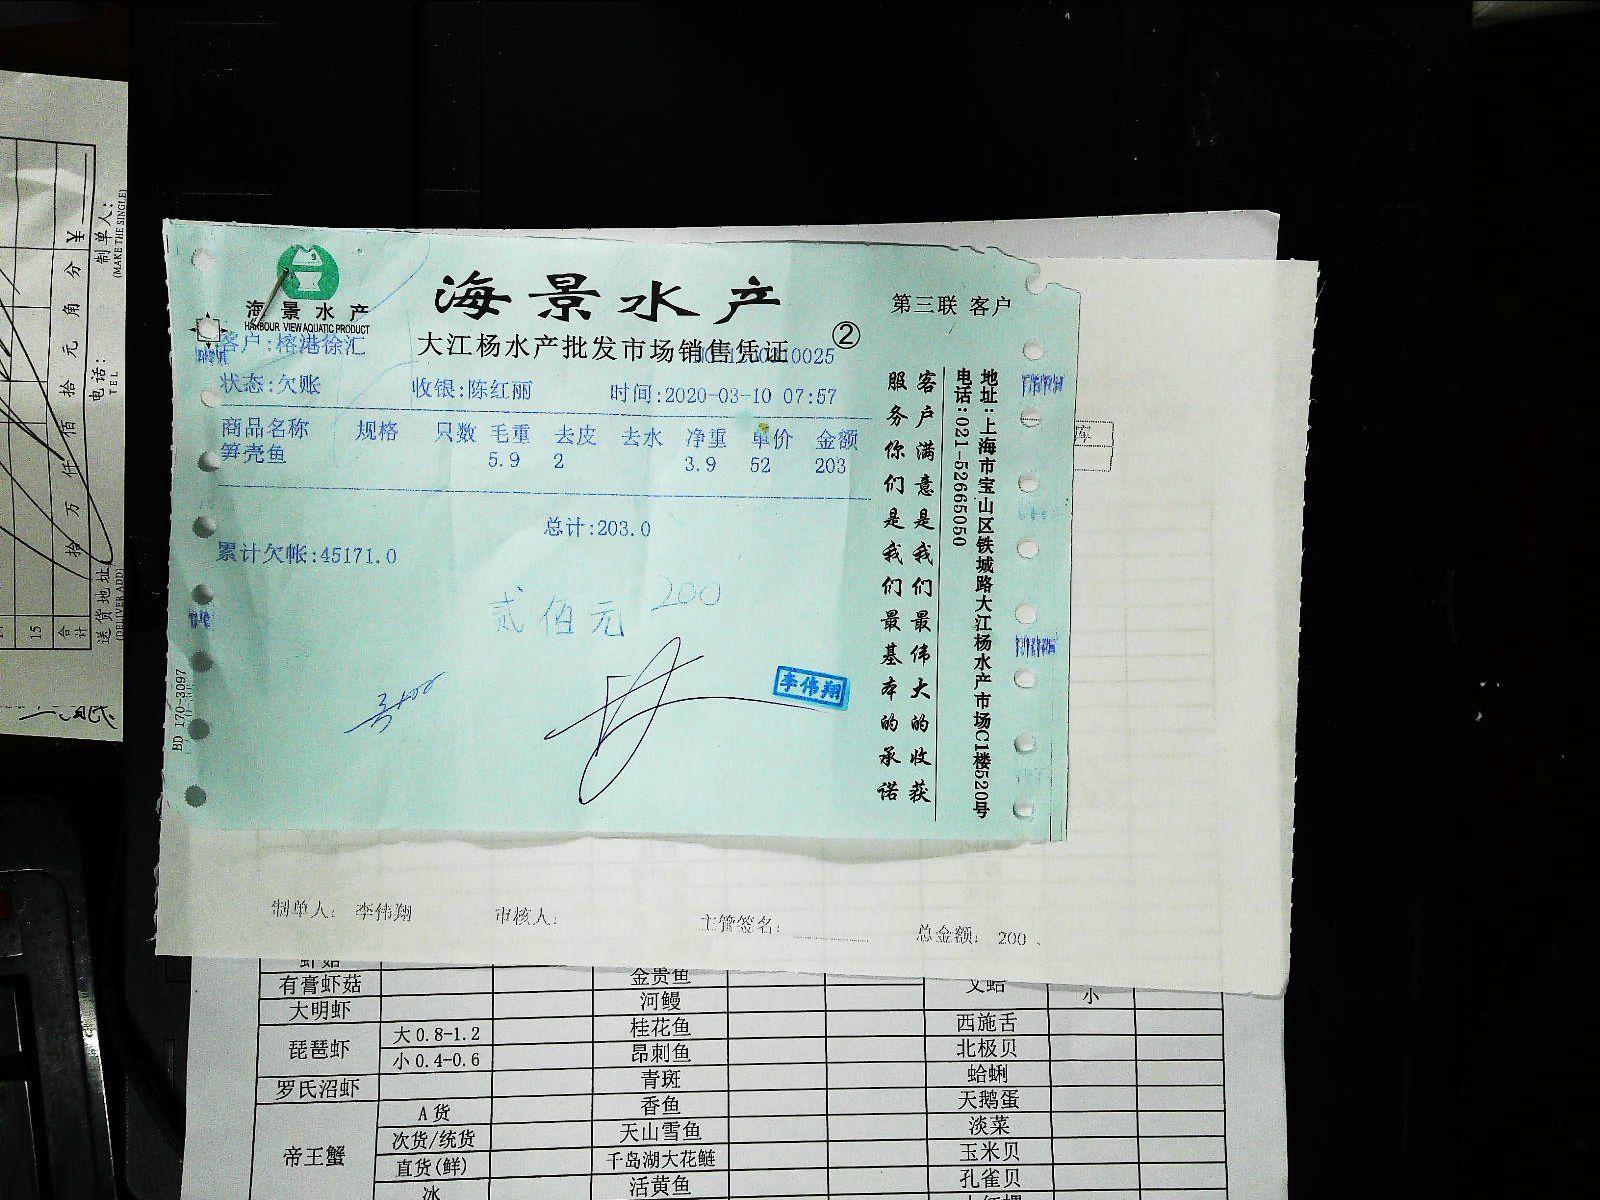 海景水产
HARBOUR VIEW AQUATIC PRODUCT
海景水产
大江杨水产批发市场销售凭证
②
第三联 客户
客户:榕港徐汇
状态:欠账 收银:陈红丽 时间:2020-03-10 07:57
商品名称 规格 只数 毛重 去皮 去水 净重 单价 金额
笋壳鱼 5.9 2 3.9 52 203
总计:203.0
累计欠帐:45171.0
贰佰元 200
李伟翔
客户满意是我们最伟大的收获
服务你们是我们最基本的承诺
地址:上海市宝山区铁城路大江杨水产市场C1楼520号
电话:021-52665050
BD 170-3097
制单人: 李伟翔 审核人: 主管签名: 总金额: 200
虾菇 金贵鱼 文蛤
有膏虾菇 河鳗 小
大明虾 桂花鱼 西施舌
琵琶虾 大0.8-1.2 昂刺鱼 北极贝
小0.4-0.6 青斑 蛤蜊
罗氏沼虾 香鱼 天鹅蛋
帝王蟹 A货 天山雪鱼 淡菜
次货/统货 千岛湖大花鲢 玉米贝
直货(鲜) 活黄鱼 孔雀贝
冰
制单人:
(MAKE THE SINGLE)
电话:
TEL
送货地址
(DELIVER ADD)
合计 拾 万 仟 佰 拾 元 角 分 ¥
15